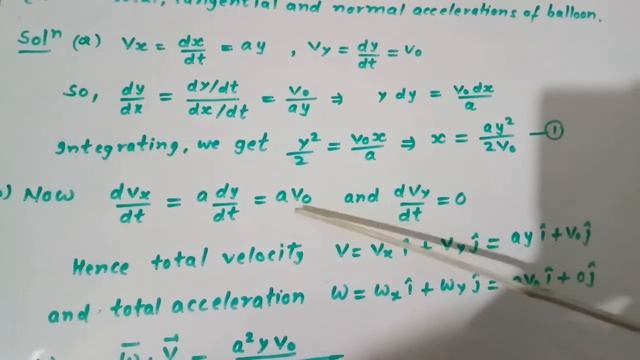 tangential and normal accelerations of balloon.
Solⁿ (a) Vx = dx/dt = ay , Vy = dy/dt = v₀
So, dy/dx = (dy/dt)/(dx/dt) = v₀/ay ⇒ y dy = v₀ dx/a
Integrating, we get y²/2 = v₀x/a ⇒ x = ay²/2v₀ —①
) Now dVx/dt = a dy/dt = av₀ and dVy/dt = 0
Hence total velocity V = Vx î + Vy ĵ = ay î + v₀ ĵ
and total acceleration w = wx î + wy ĵ = av₀ î + 0 ĵ
w⃗ · V⃗ = a²yv₀